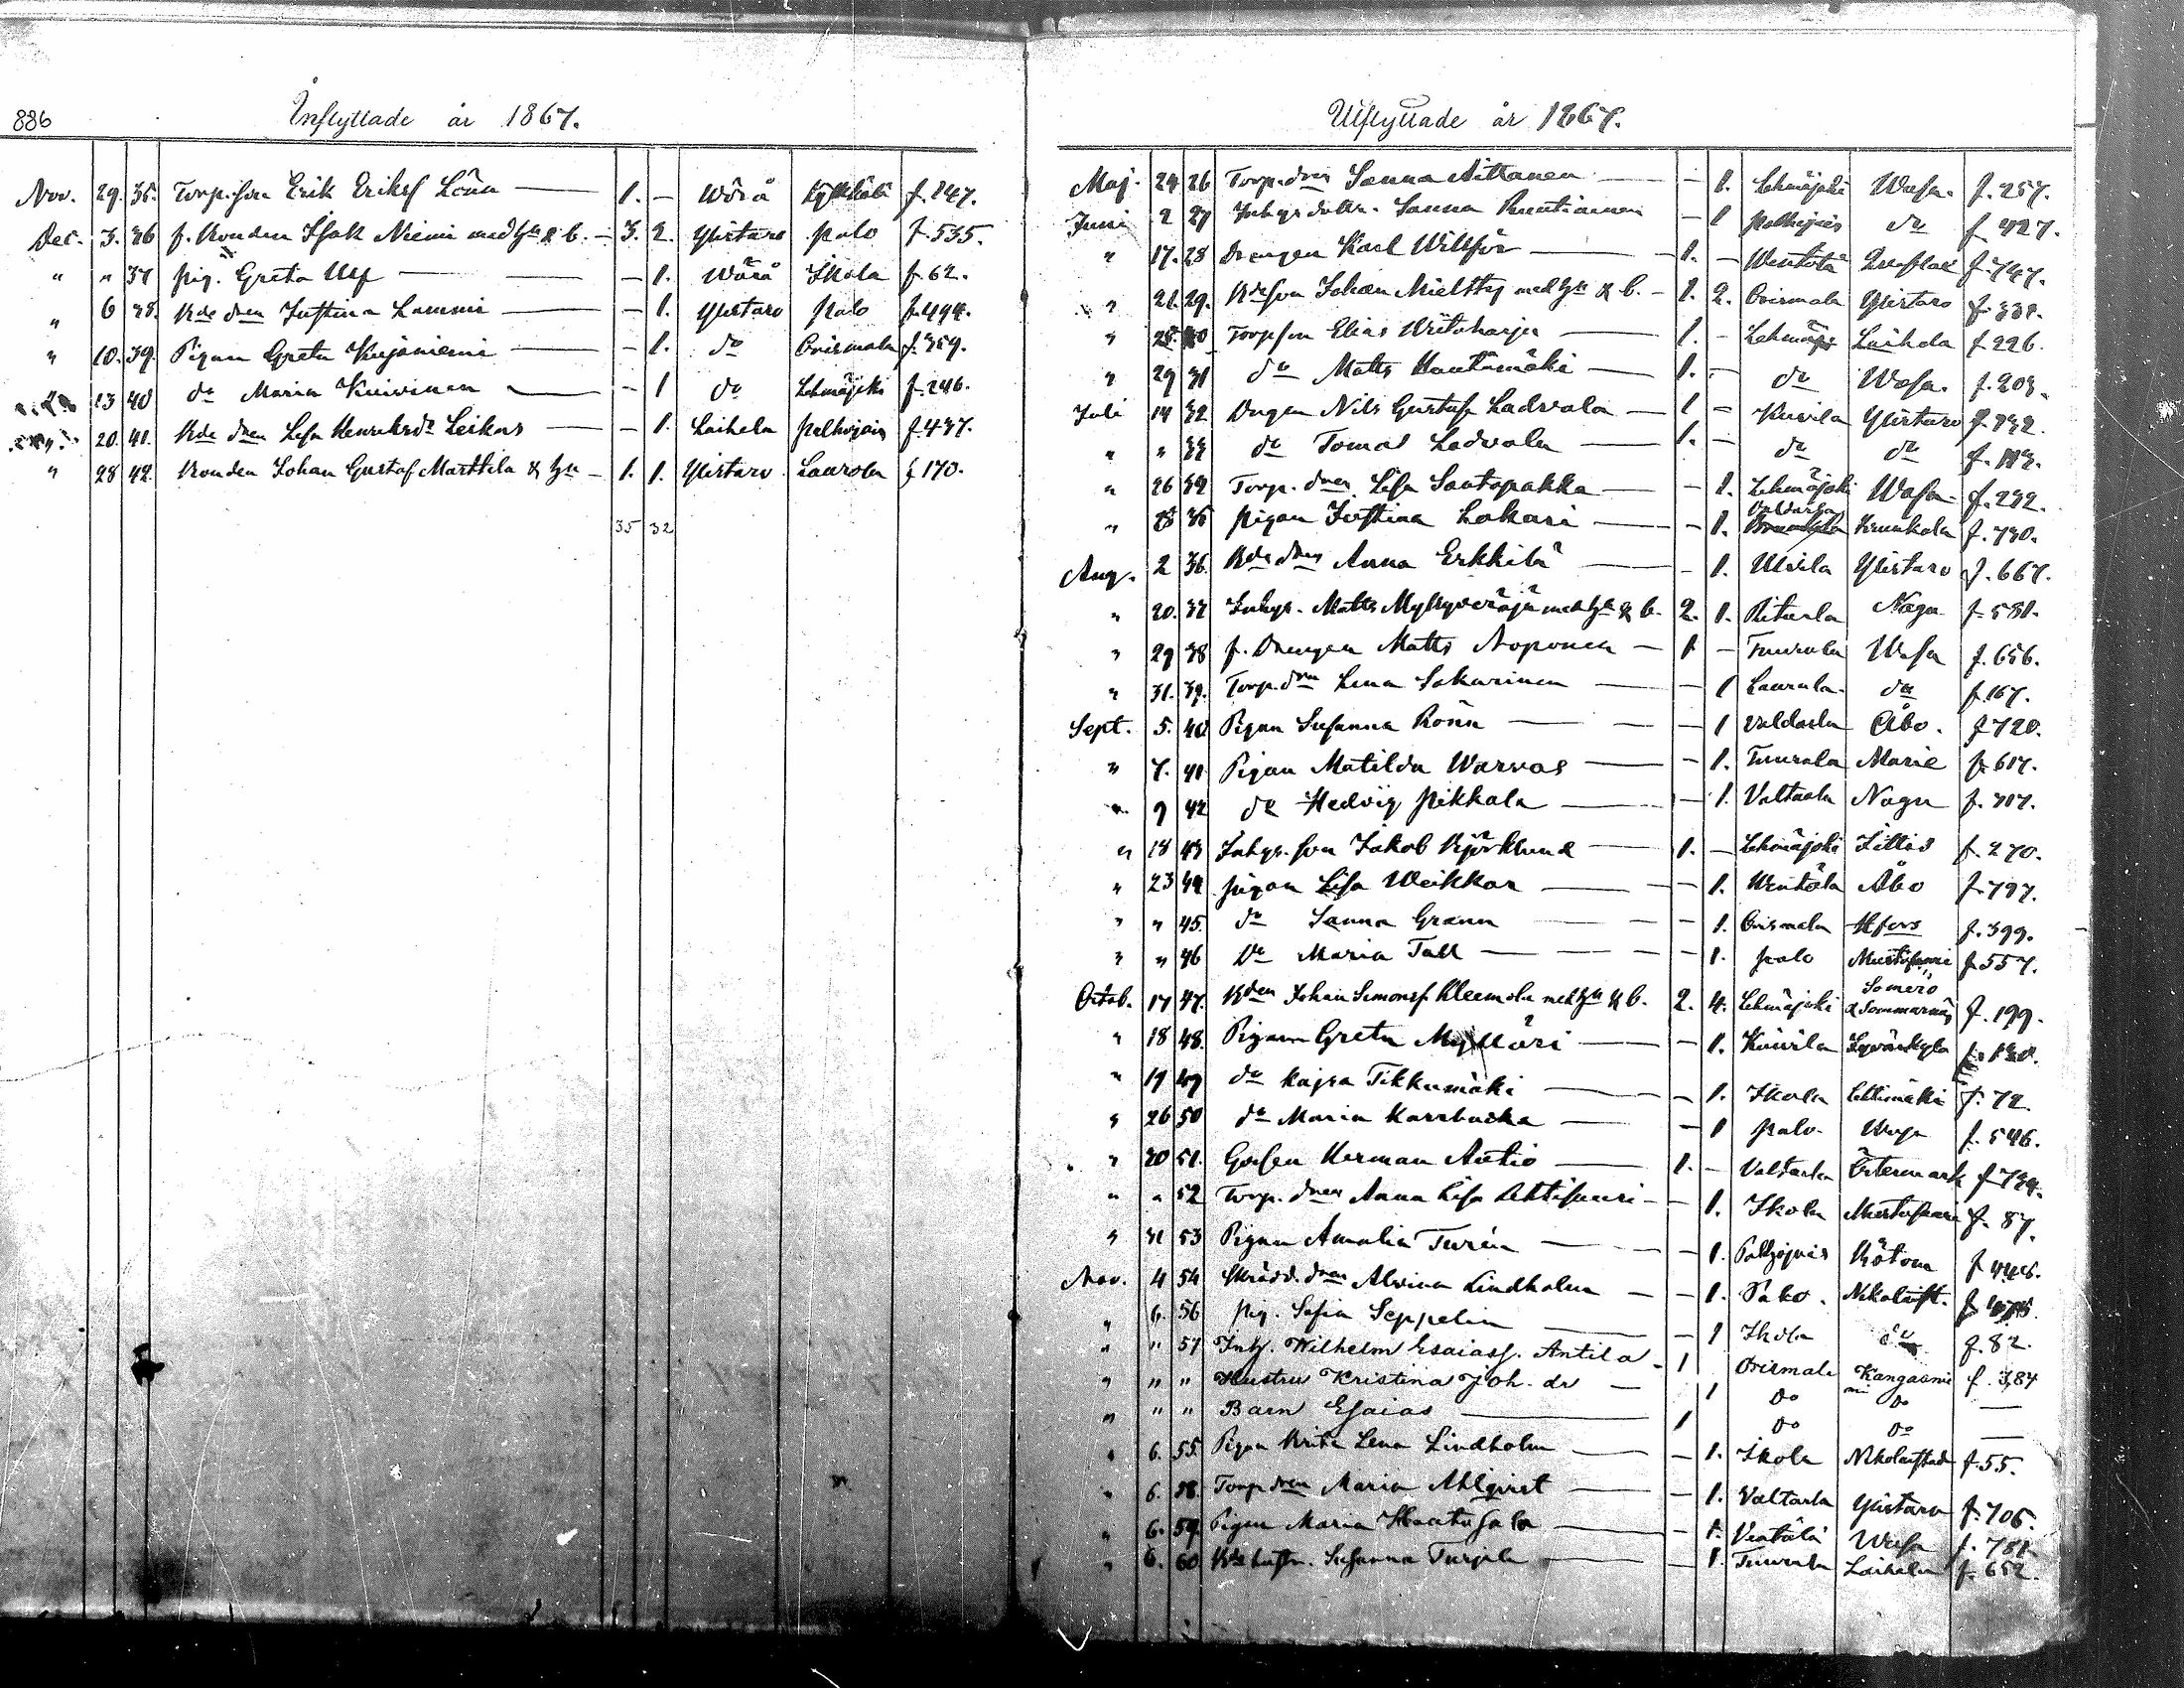 886
Inflyttade år 1867.
Nov. 29. 35. Torp.son Erik Eriksf Lönn — 1. — Wörå f. 247.
Dec. 3. 36 f. Bonden Isak Niemi med hu & b. — 3. 2. Ylistaro Palo f. 535.
" " 37 pig. Greta Ulf — — 1. Wörå Ikola f. 62.
" 6 38. Bde dren Justina Lammi — — 1. Ylistaro Palo f. 494.
" 10. 39. Pigan Greta Kujaniemi — — 1. do Orismala f. 359.
" 13 40 do Maria Kuivinen — — 1 do Lehmäjoki f. 246.
" 20. 41. Bde dren Lisa Henriksdr Leikas — — 1. Laihela Palhojais f. 437.
" 28 42. Bonden Johan Gustaf Marttila & hu — 1. 1. Ylistaro Laurola f. 170.
35 32
Utflyttade år 1867.
Maj. 24 26 Torp.dren Sanna Aittanen — — 1. Lehmäjoki Wasa. f. 257.
Juni 2 27 Inhys dottr. Sanna Ruutiainen — 1 Palhojais do f. 427.
" 17. 28 Drengen Karl Willför — 1. — Wentälä f. 747.
" 21. 29. Bdeson Johan Mieltty med hu & b. — 1. 2. Orismala Ylistaro f. 331.
" 25. 30 Torpson Elias Writaharju — 1. — Lehmäjo Laihela f. 226.
" 29 31 do Matts Hautamäki — 1. — do Wasa. f. 203.
Juli 14 32 Drngen Nils Gustaf Ladvala — 1 — Kuivila Ylistaro f. 132.
" " 33 do Tomas Ladvala — 1. — do do f. 113.
" 26 34 Torp. dren Lisa Santapakka — — 1. Lehmäjoki Wasa f. 232.
" 28 35 Pigan Justina Lakari — — 1. Valdarla f. 730.
Aug. 2 36. Bde dren Anna Erkkilä — — 1. Ulvila Ylistaro f. 667.
" 20. 37 Inhys. Matts Myllyveräjä med hu & b. 2. 1. Riturla Nagu f. 581.
" 29 38 f. Drengen Matts Noponen — 1 — Tuurala Wasa f. 656.
" 31. 39. Torp.dren Lena Sakarinen — — 1 Laurola do f. 167.
Sept. 5. 40 Pigan Susanna Rönn — — 1 Valdarla Åbo. f. 720.
" 7. 41. Pigan Matilda Warvas — — 1. Tuurala Marie f. 617.
" 9 42 do Hedvig Pikkala — — 1. Valtaala Nagu f. 717.
" 18 43 Inhys. son Jakob Björklund — 1. — Lehmäjoki Iittis f. 270.
" 23 44 pigan Lisa Weikkar — — 1. Wentälä Åbo f. 797.
" " 45. do Sanna Grann — — 1. Orismala Hfors f. 399.
" " 46 Do Maria Tall — — 1. Palo Mustasaari f. 557.
Octob. 17 47. Bden Johan Simonsf. Kleemola med hu & b. 2. 4. Lehmäjoki Somero & Sommarnäs f. 199.
" 18 48. Pigan Greta Mylläri — — 1. Kuivila Jyväskylä
" 19 49 do Kajsa Tikkamäki — — 1. Ikola Lehtimäki f. 72.
" 26 50 do Maria Karrbacka — — 1 Palo Wasa f. 546.
" 30 51. Gossen Herman Autio — 1. — Valtarla Östermark f. 734.
" " 52 Torp. dren Anna Lisa Lehtisaari — — 1. Ikola Mustasaari f. 87.
" 31 53 Pigan Amalia Turén — — 1. Palhojais Bötom f. 445.
Nov. 4 54 Skrädd. dren Alvina Lindholm — — 1. Palo. Nikolaist.
" 6. 56 Pig. Sofia Seppelin — — 1 Ikola do f. 82.
" " 57 Inh. Wilhelm Esaiasf. Antila — 1 Orismala Kangasniemi f. 384
" " " Hustru Kristina Joh. dr — 1 Do Do —
" " " Barn Esaias — 1 Do Do —
" 6. 55. Pigan Brita Lena Lindholm — — 1. Ikola Nikolaistad f. 55.
" 6. 58. Torp dren Maria Ahlqvist — — 1. Valtarla Ylistaro f. 705.
" 6. 59. Pigan Maria — — 1. Ventälä Wasa f. 781
" 6. 60 Bde hustr. Susanna Turpela — — 1. Tuurala Laihela f. 652.